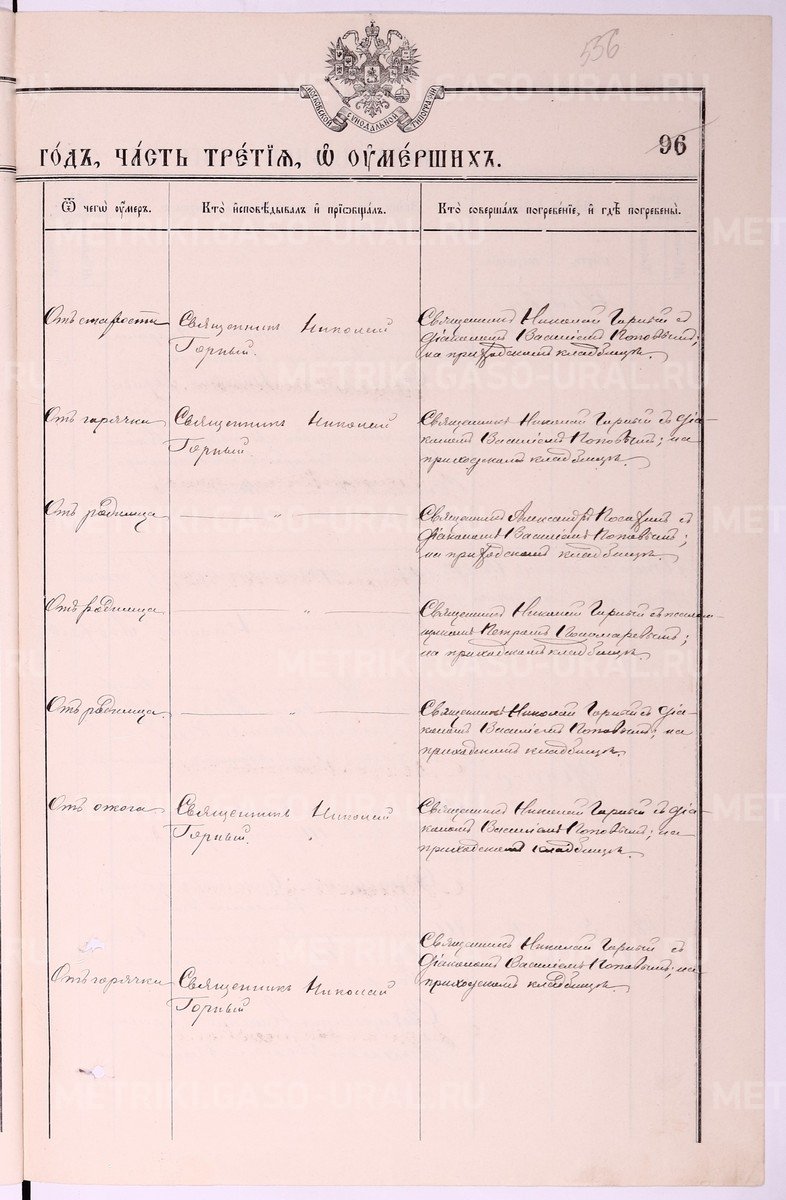 536
МОСКОВСКОЙ СѴНОДАЛЬНОЙ ТИПОГРАФІИ
96
ГО́ДЪ, ЧА́СТЬ ТРЕ́ТІѦ, Ѡ҆ ОУ҆МЕ́РШИХЪ.
Ѿ чегѡ̀ оу҆́мер.
Кто̀ и҆сповѣ́дывалъ и҆ прїѡбща́лъ.
Кто̀ соверша́лъ погребе́нїе, и҆ гдѣ̀ погребены̀.
Отъ старости
Священникъ Николай
Горный.
Священникъ Николай Горный съ
діакономъ Василіемъ Поповымъ;
на приходскомъ кладбищѣ.
Отъ горячки
Священникъ Николай
Горный.
Священникъ Николай Горный съ діа-
кономъ Василіемъ Поповымъ; на
приходскомъ кладбищѣ.
Отъ родимца
— " —
Священникъ Александръ съ
діакономъ Василіемъ Поповымъ;
на приходскомъ кладбищѣ.
Отъ родимца
— " —
Священникъ Николай Горный съ псалом-
щикомъ Петромъ Пономаревымъ;
на приходскомъ кладбищѣ.
Отъ родимца.
— " —
Священникъ Николай Горный съ діа-
кономъ Василіемъ Поповымъ; на
приходскомъ кладбищѣ.
Отъ ожога
Священникъ Николай
Горный.
Священникъ Николай Горный съ діа-
кономъ Василіемъ Поповымъ; на
приходскомъ кладбищѣ.
Отъ горячки
Священникъ Николай
Горный
Священникъ Николай Горный съ
діакономъ Василіемъ Поповымъ; на
приходскомъ кладбищѣ.
METRIKI.GASO-URAL.RU